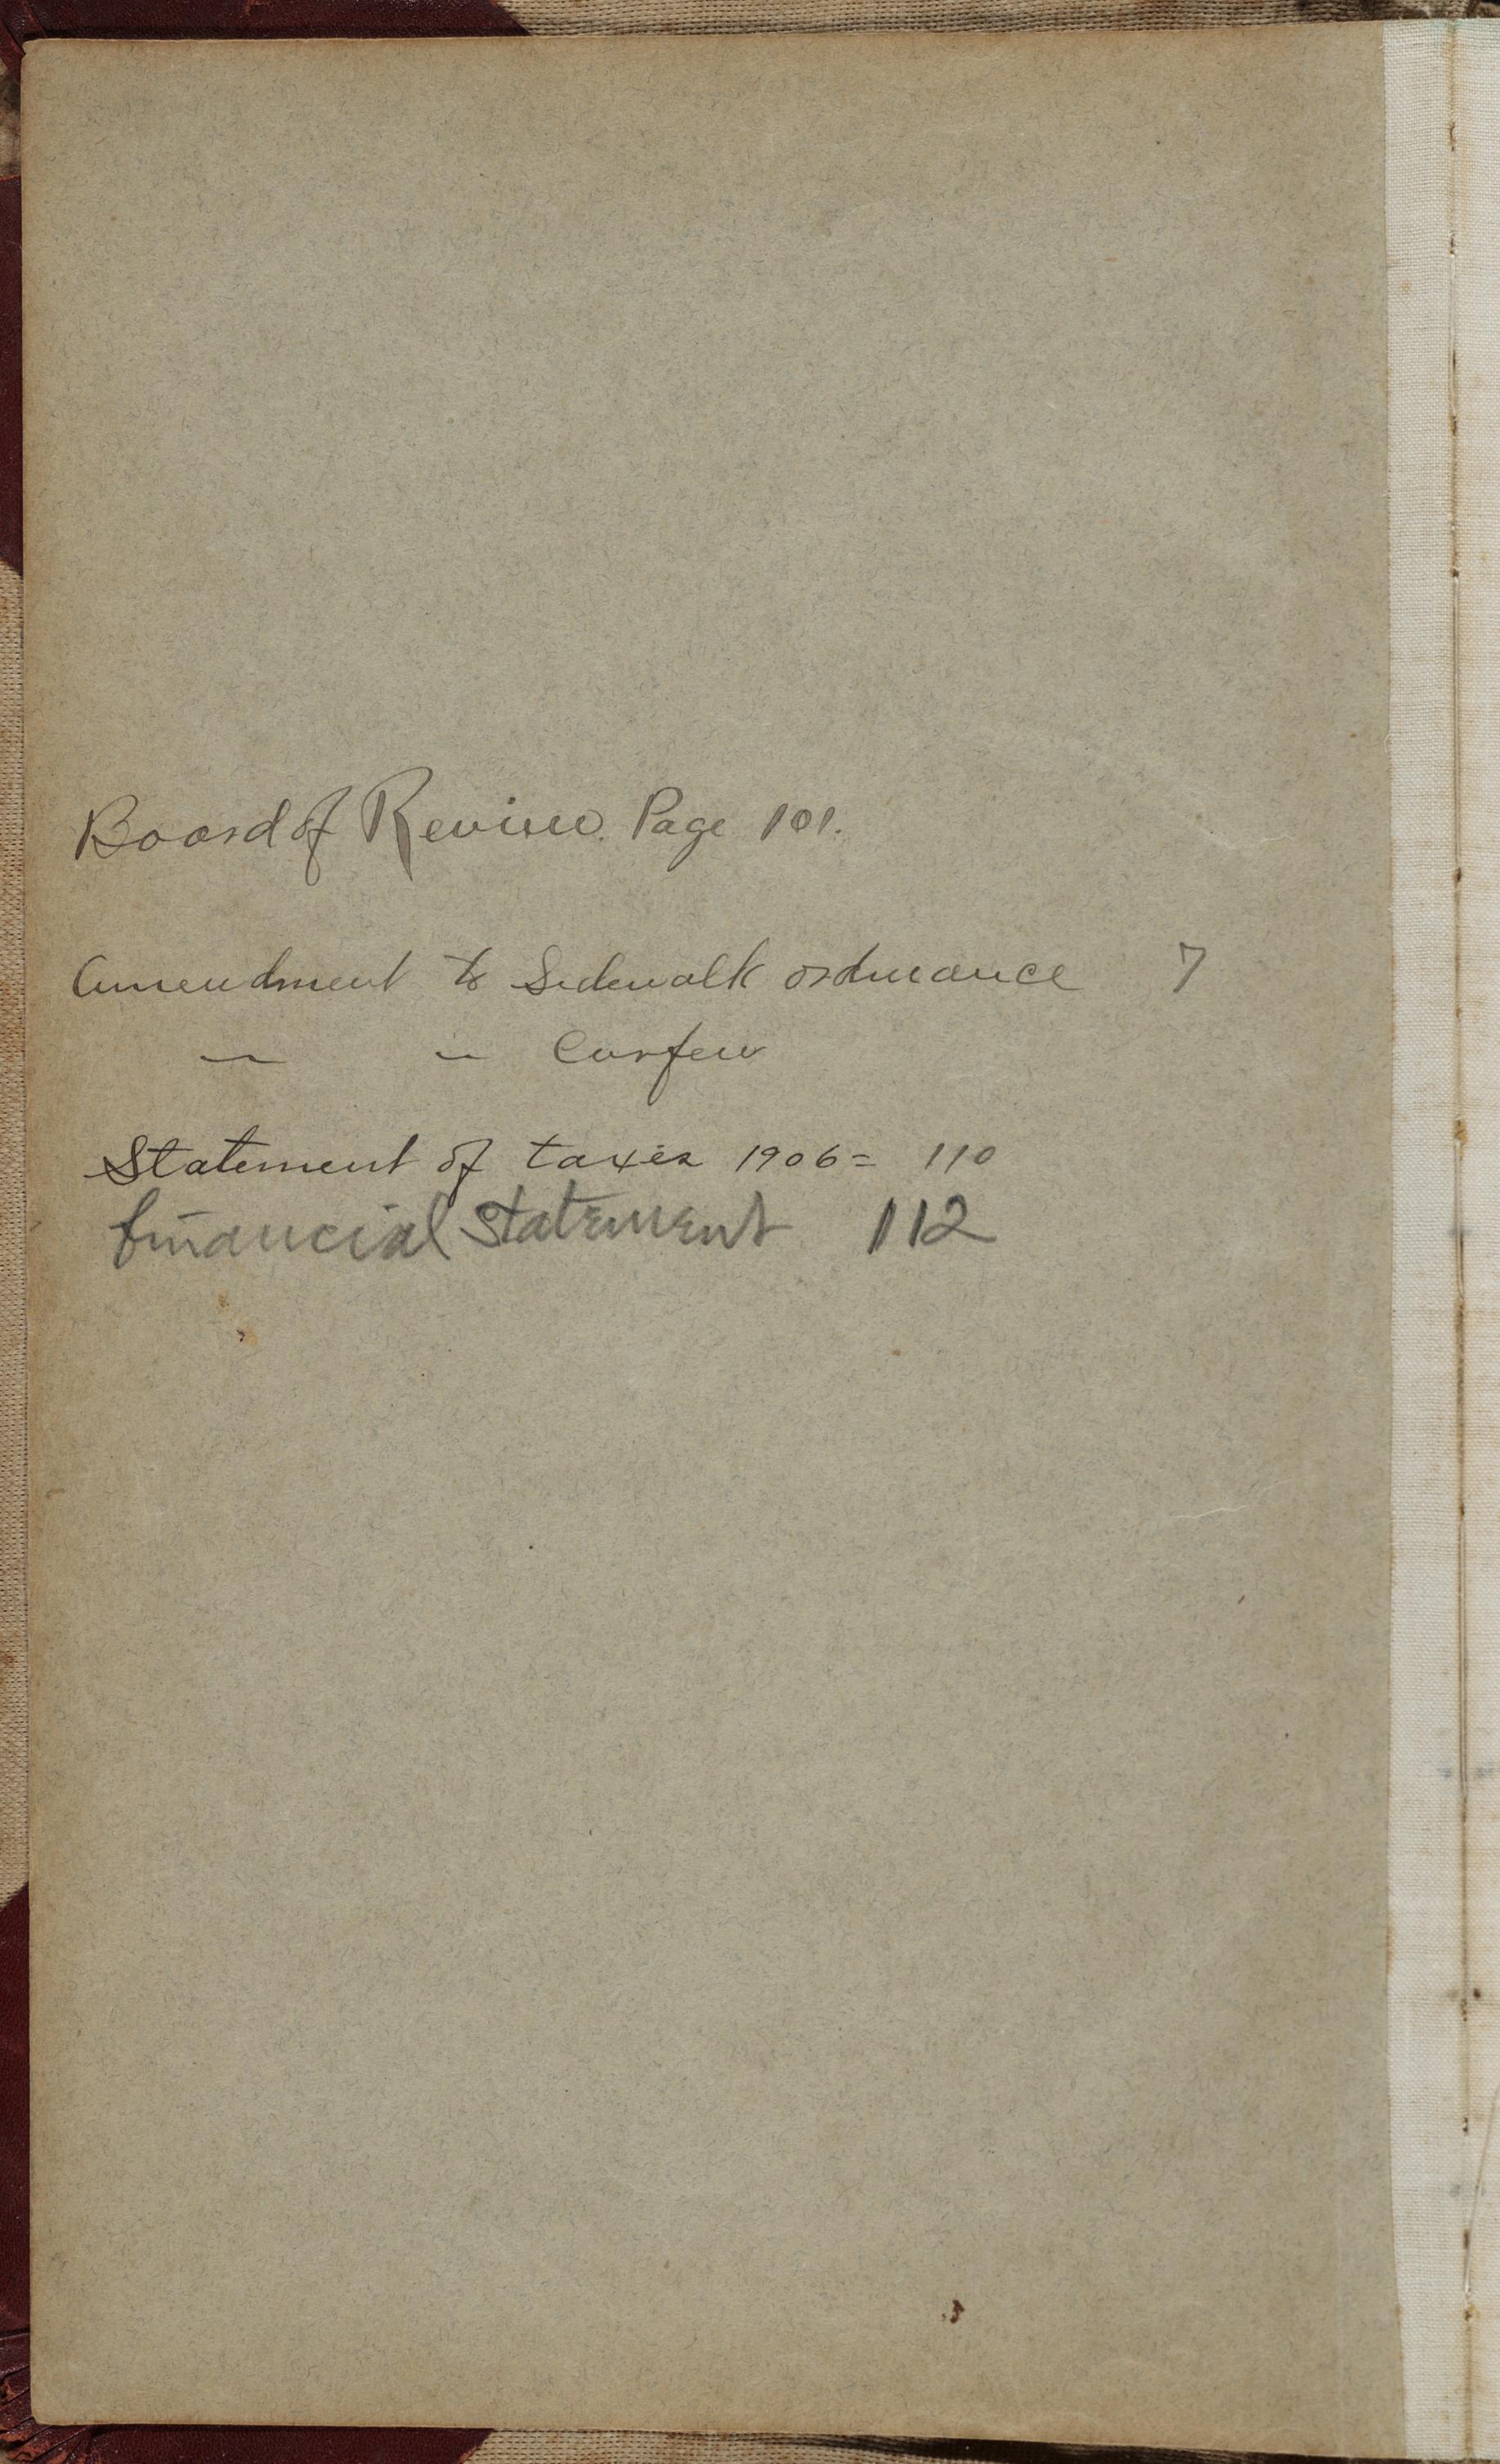 Board of Review. Page 101.
Amendment to Sidewalk ordinance 7
" " Curfew
Statement of taxes 1906 = 110
financial statement 112